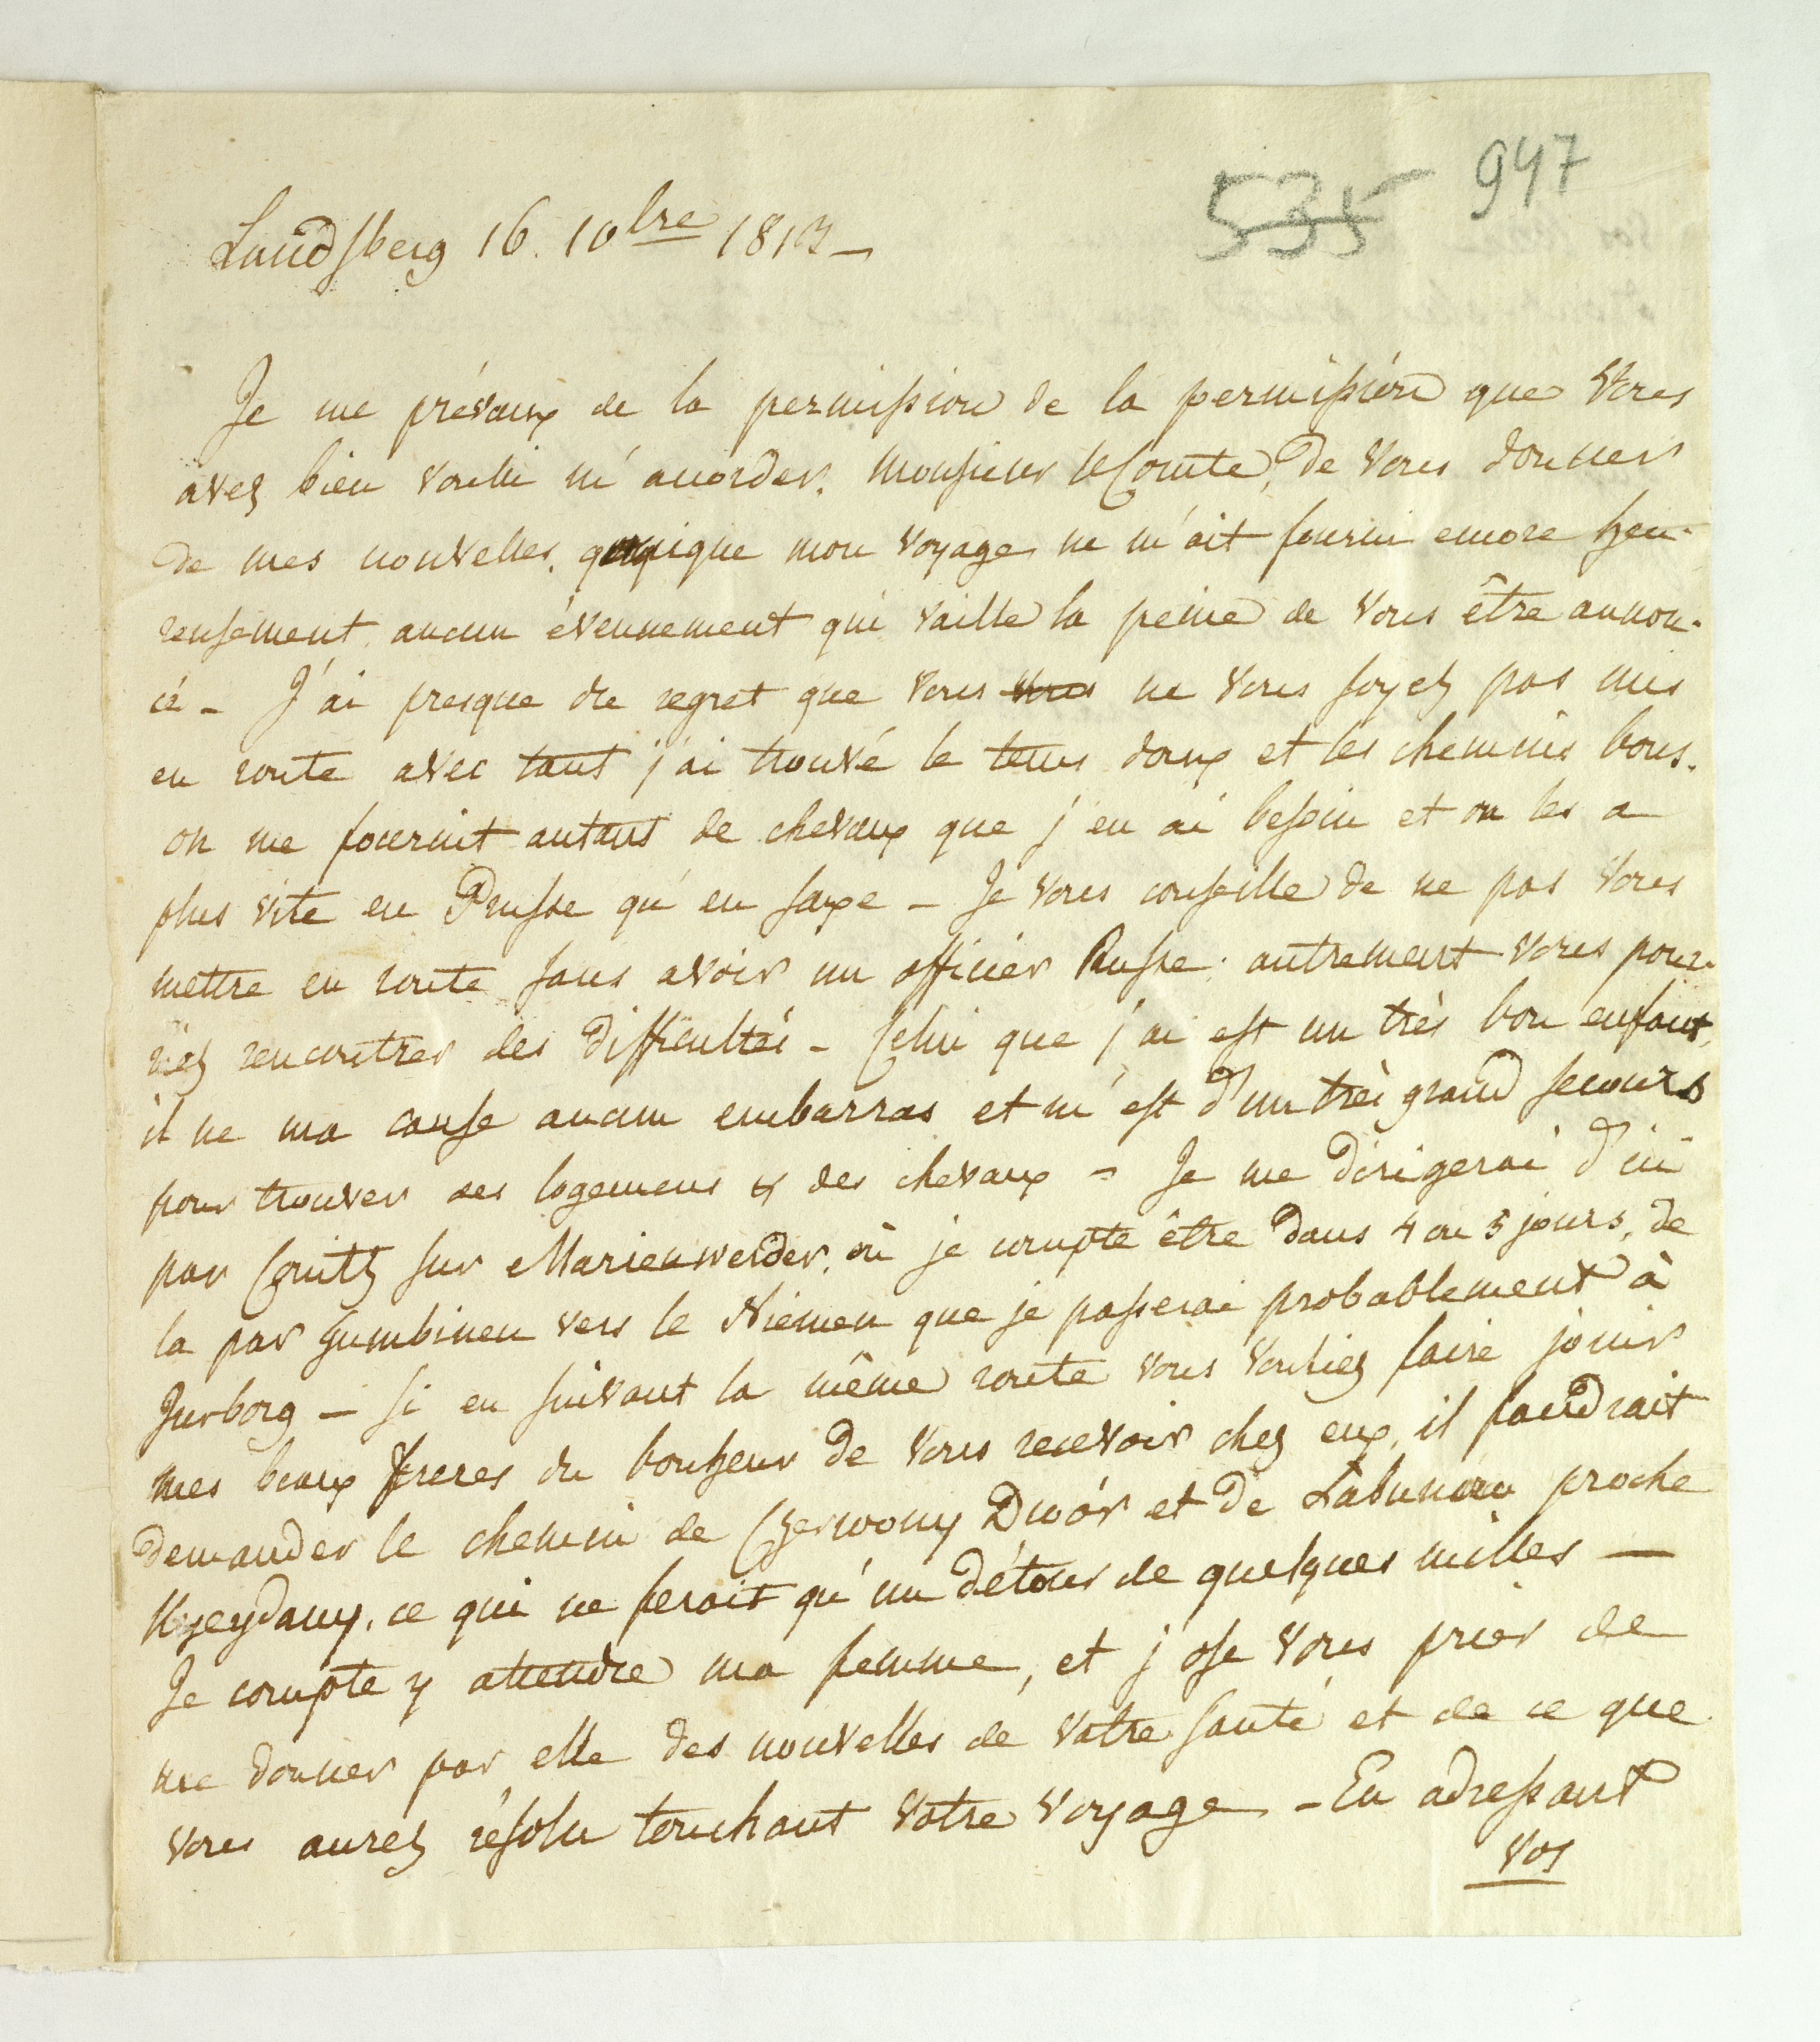 947
535
Landsberg 16. 10bre 1813 –
Je me prévaux de la permission de la permission que Vous
avez bien voulu m'accorder, Monsieur le Comte, de Vous donner
de mes nouvelles, quoique mon voyage ne m'ait fourni encore heu-
reusement aucun évennement qui vaille la peine de Vous être annon-
cé – J'ai presque du regret que Vous Vous ne Vous soyez pas mis
en route avec tant j'ai trouvé le tems doux et les chemins bons.
on me fournit autant de chevaux que j'en ai besoin et on les a
plus vite en Prusse qu'en Saxe – Je Vous conseille de ne pas Vous
mettre en route sans avoir un officier Russe; autrement Vous pour-
riez rencontrer des difficultés – Celui que j'ai est un très bon enfant,
il ne ma cause aucun embarras et m'est d'un très grand secours
pour trouver des logemens & des chevaux = Je me dirigerai d'ici
par Conitz sur Marienwerder, où je compte être dans 4 ou 5 jours, de
la par Gumbinen vers le Niémen que je passerai probablement à
Jurborg – Si en suivant la même route Vous Vouliez faire jouir
mes beaux freres du bonheur de Vous recevoir chez eux, il faudrait
demander le chemin de Czerwony Dwór et de Labunow proche
Kyeydany, ce qui ne feroit qu'un détour de quelques milles —
Je compte y attendre ma femme, et j ose Vous prier de
me donner par elle des nouvelles de Votre santé et de ce que
Vous aurez résolu touchant Votre Voyage – En adressant
Vos